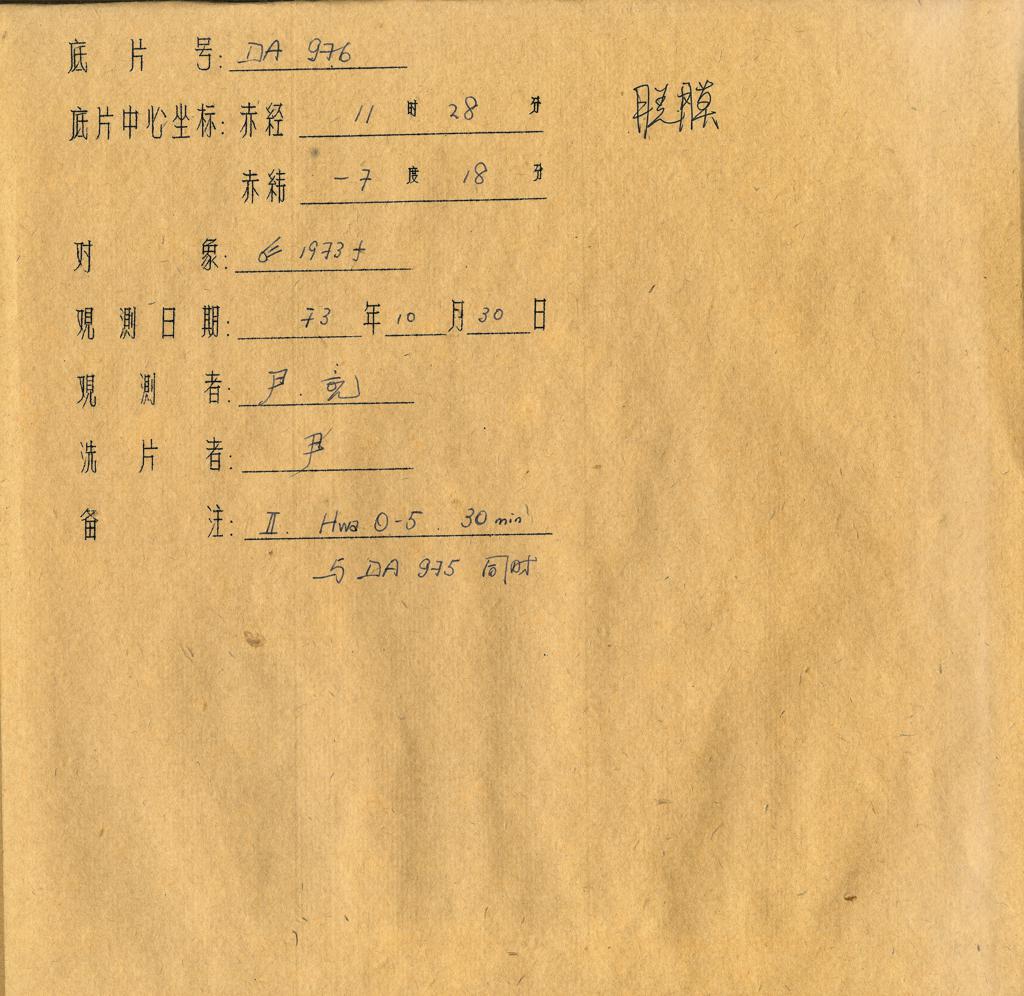 底片号: DA 976
脱膜
底片中心坐标: 赤经 11 时 28 分
赤纬 -7 度 18 分
对象: 1973f
观测日期: 73 年 10 月 30 日
观测者: 尹. 亮
洗片者: 尹
备注: II. Hwa O-5. 30 min
与 DA 975 同时